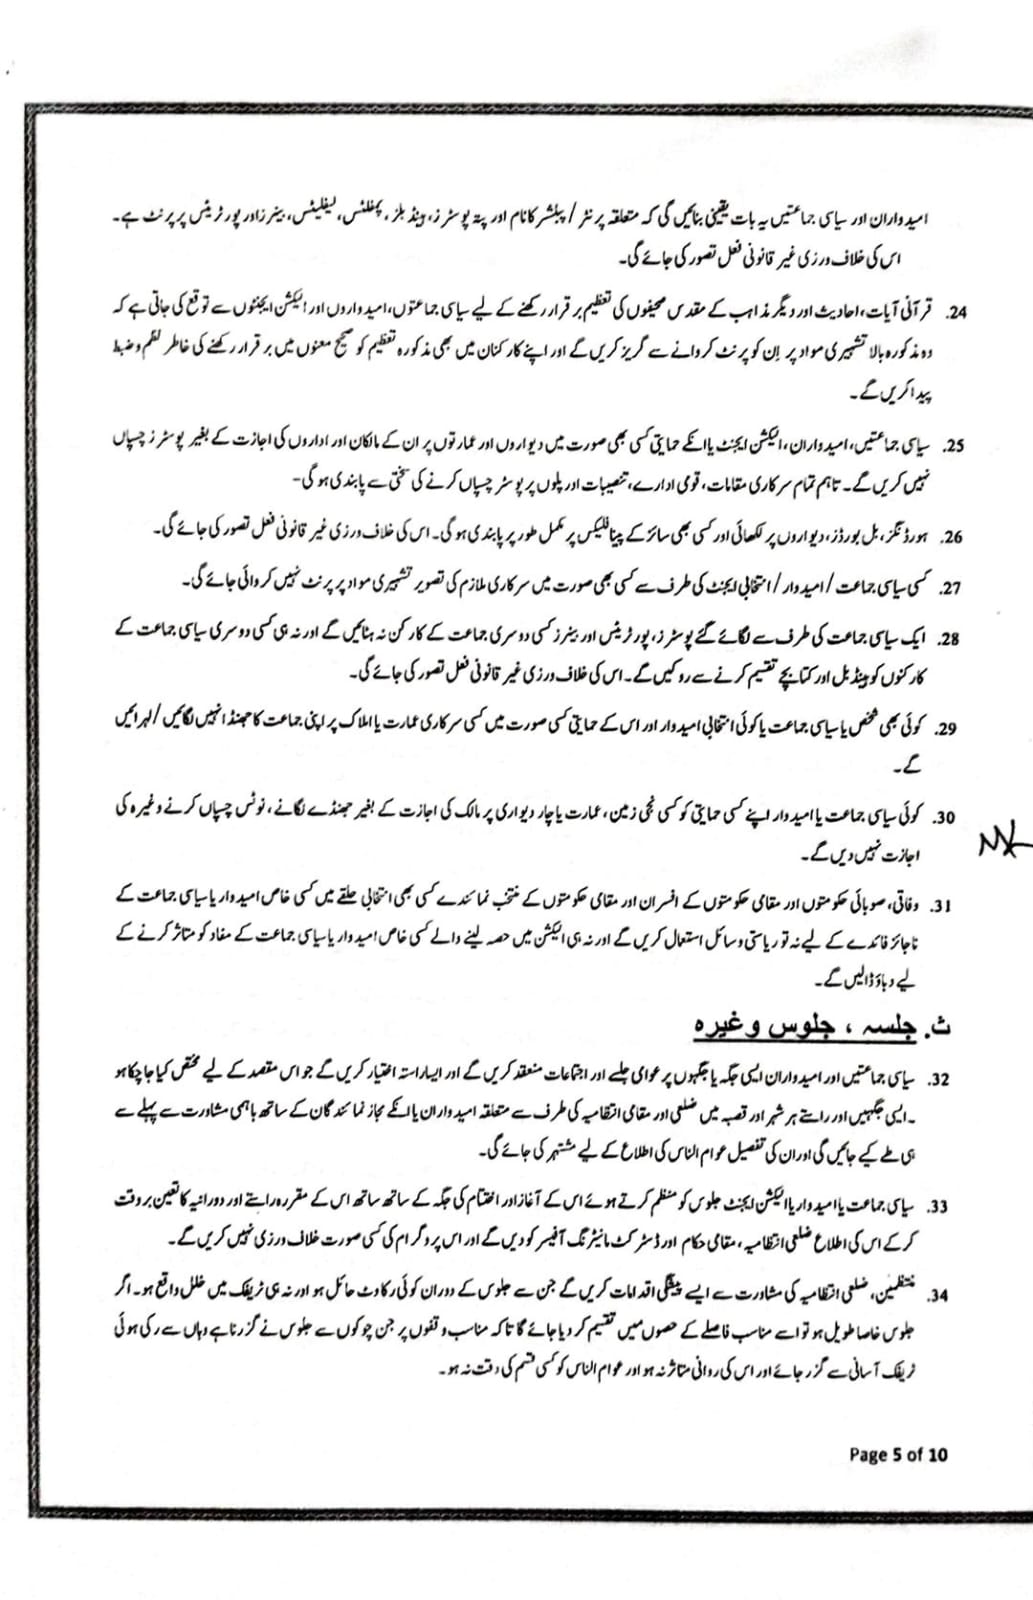 امیدواران اور سیاسی جماعتیں یہ بات یقینی بنائیں گی کہ متعلقہ پرنٹر / پبلشر کا نام اور پتہ پوسٹرز، ہینڈ بلز، پمفلٹس، لیفلیٹس، بینرز اور پورٹریٹس پر پرنٹ ہے۔
اس کی خلاف ورزی غیر قانونی فعل تصور کی جائے گی۔
24. قرآنی آیات، احادیث اور دیگر مذاہب کے مقدس صحیفوں کی تعظیم برقرار رکھنے کے لیے سیاسی جماعتوں، امیدواروں اور الیکشن ایجنٹوں سے توقع کی جاتی ہے کہ
وہ مذکورہ بالا تشہیری مواد پر اِن کو پرنٹ کروانے سے گریز کریں گے اور اپنے کارکنان میں بھی مذکورہ تعظیم کو صحیح معنوں میں برقرار رکھنے کی خاطر نظم و ضبط
پیدا کریں گے۔
25. سیاسی جماعتیں، امیدواران، الیکشن ایجنٹ یا انکے حمایتی کسی بھی صورت میں دیواروں اور عمارتوں پر ان کے مالکان اور اداروں کی اجازت کے بغیر پوسٹرز چسپاں
نہیں کریں گے۔ تاہم تمام سرکاری مقامات، قومی ادارے، تنصیبات اور پلوں پر پوسٹر چسپاں کرنے کی سختی سے پابندی ہو گی-
26. ہورڈنگز، بل بورڈز، دیواروں پر لکھائی اور کسی بھی سائز کے پینا فلیکس پر مکمل طور پر پابندی ہو گی۔ اس کی خلاف ورزی غیر قانونی فعل تصور کی جائے گی۔
27. کسی سیاسی جماعت / امیدوار / انتخابی ایجنٹ کی طرف سے کسی بھی صورت میں سرکاری ملازم کی تصویر تشہیری مواد پر پرنٹ نہیں کروائی جائے گی۔
28. ایک سیاسی جماعت کی طرف سے لگائے گئے پوسٹرز، پورٹریٹس اور بینرز کسی دوسری جماعت کے کارکن نہ ہٹائیں گے اور نہ ہی کسی دوسری سیاسی جماعت کے
کارکنوں کو ہینڈ بل اور کتابچے تقسیم کرنے سے روکیں گے۔ اس کی خلاف ورزی غیر قانونی فعل تصور کی جائے گی۔
29. کوئی بھی شخص یا سیاسی جماعت یا کوئی انتخابی امیدوار اور اس کے حمایتی کسی صورت میں کسی سرکاری عمارت یا املاک پر اپنی جماعت کا جھنڈا نہیں لگائیں / لہرائیں
گے۔
30. کوئی سیاسی جماعت یا امیدوار اپنے کسی حمایتی کو کسی نجی زمین، عمارت یا چار دیواری پر مالک کی اجازت کے بغیر جھنڈے لگانے، نوٹس چسپاں کرنے وغیرہ کی
اجازت نہیں دیں گے۔
31. وفاقی، صوبائی حکومتوں اور مقامی حکومتوں کے افسران اور مقامی حکومتوں کے منتخب نمائندے کسی بھی انتخابی حلقے میں کسی خاص امیدوار یا سیاسی جماعت کے
ناجائز فائدے کے لیے نہ تو ریاستی وسائل استعمال کریں گے اور نہ ہی الیکشن میں حصہ لینے والے کسی خاص امیدوار یا سیاسی جماعت کے مفاد کو متاثر کرنے کے
لیے دباؤ ڈالیں گے۔
ث. جلسہ ، جلوس وغیرہ
32. سیاسی جماعتیں اور امیدواران ایسی جگہ یا جگہوں پر عوامی جلسے اور اجتماعات منعقد کریں گے اور ایسا راستہ اختیار کریں گے جو اس مقصد کے لیے مختص کیا جا چکا ہو
۔ ایسی جگہیں اور راستے ہر شہر اور قصبہ میں ضلعی اور مقامی انتظامیہ کی طرف سے متعلقہ امیدواران یا انکے مجاز نمائندگان کے ساتھ باہمی مشاورت سے پہلے سے
ہی طے کیے جائیں گی اور ان کی تفصیل عوام الناس کی اطلاع کے لیے مشتہر کی جائے گی۔
33. سیاسی جماعت یا امیدوار یا الیکشن ایجنٹ جلوس کو منظم کرتے ہوئے اس کے آغاز اور اختتام کی جگہ کے ساتھ ساتھ اس کے مقررہ راستے اور دورانیہ کا تعین بروقت
کر کے اس کی اطلاع ضلعی انتظامیہ، مقامی حکام اور ڈسٹرکٹ مانیٹرنگ آفیسر کو دیں گے اور اس پروگرام کی کسی صورت خلاف ورزی نہیں کریں گے۔
34. منتظمین، ضلعی انتظامیہ کی مشاورت سے ایسے پیشگی اقدامات کریں گے جن سے جلوس کے دوران کوئی رکاوٹ حائل ہو اور نہ ہی ٹریفک میں خلل واقع ہو۔ اگر
جلوس خاصا طویل ہو تو اسے مناسب فاصلے کے حصوں میں تقسیم کر دیا جائے گا تاکہ مناسب وقفوں پر جن چوکوں سے جلوس نے گزرنا ہے وہاں سے رکی ہوئی
ٹریفک آسانی سے گزر جائے اور اس کی روانی متاثر نہ ہو اور عوام الناس کو کسی قسم کی دقت نہ ہو۔
Page 5 of 10